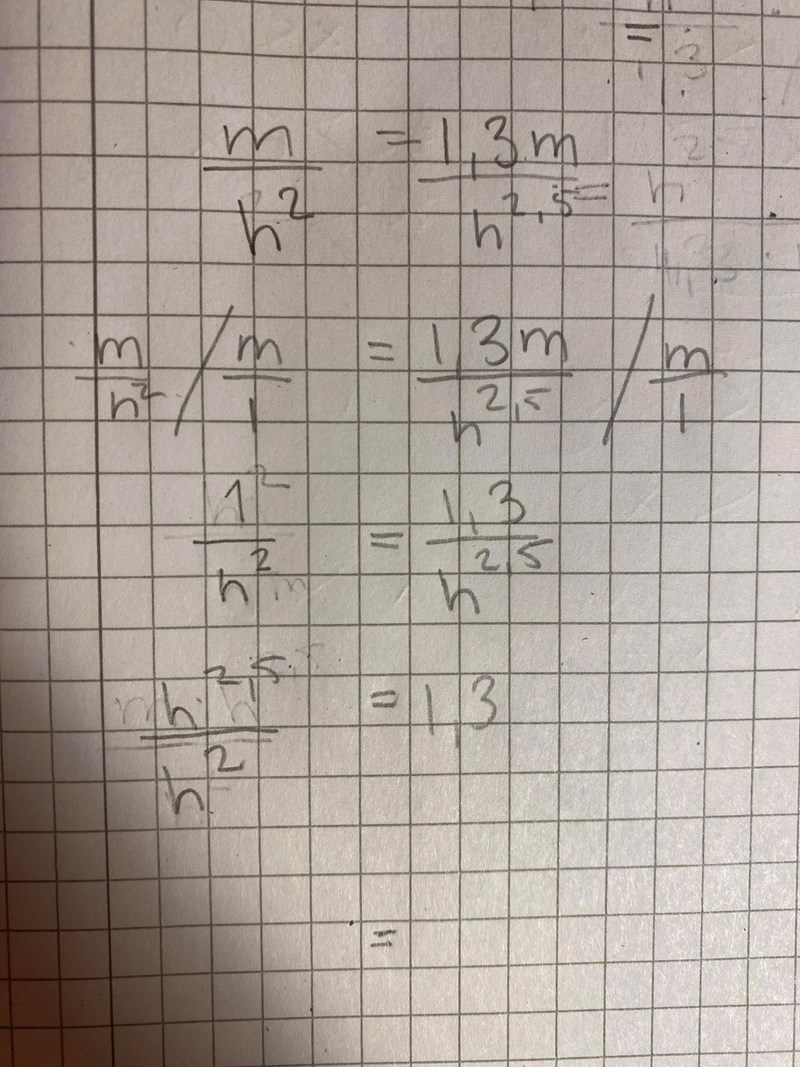 m/h² = 1,3m/h^2,5 =
m/h² / m/1 = 1,3m/h^2,5 / m/1
1/h² = 1,3/h^2,5
h^2,5/h² = 1,3
=